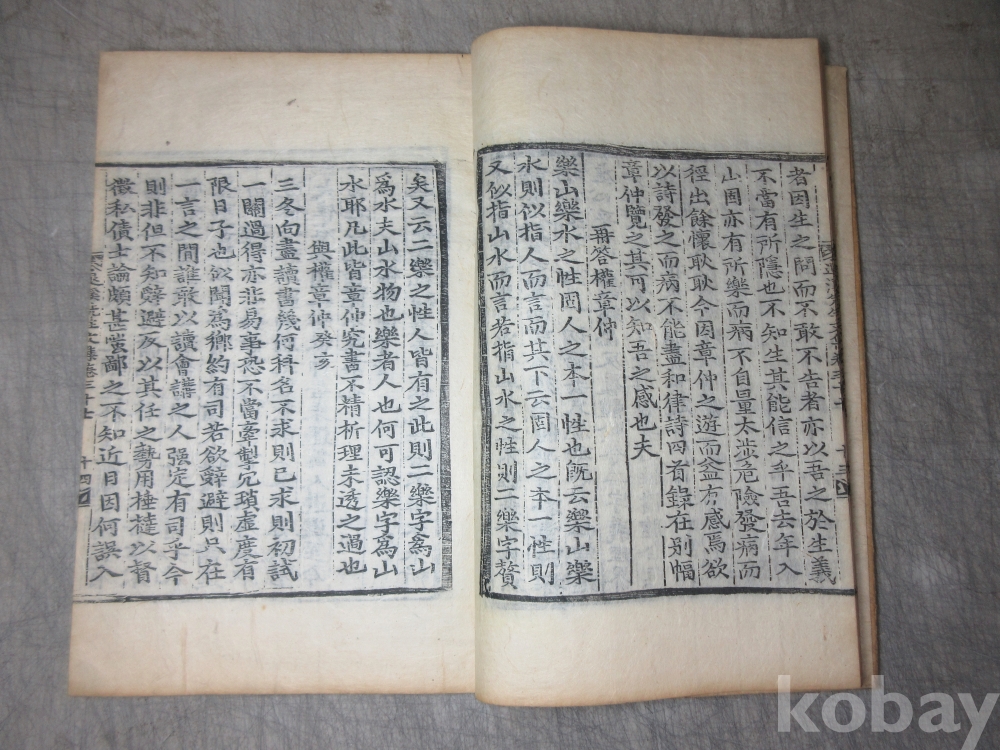 者因生之問而不敢不告者亦以吾之於生義
不當有所隱也不知生其能信之乎吾去年入
山固亦有所樂而病不自量太涉危險發病而
徑出餘懷耿耿今因章仲之遊而益有感焉欲
以詩發之而病不能盡和律詩四首錄在別幅
章仲覽之其可以知吾之感也夫
再答權章仲
樂山樂水之性固人之本一性也旣云樂山樂
水則似指人而言而其下云固人之本一性則
又似指山水而言若指山水之性則二樂字贅
矣又云二樂之性人皆有之此則二樂字爲山
爲水夫山水物也樂者人也何可認樂字爲山
水耶凡此皆章仲究書不精析理未透之過也
與權章仲 癸亥
三冬向盡讀書幾何科名不求則已求則初試
一關過得亦非易事恐不當牽掣冗瑣虛度有
限日子也似聞爲鄕約有司若欲辭避則只在
一言之間誰敢以讀會講之人强定有司乎今
則非但不知辭避反以其任之勢用捶撻以督
徵私債士論頗甚嗤鄙之不知近日因何誤入
退溪先生文集卷三十七
十四
kobay